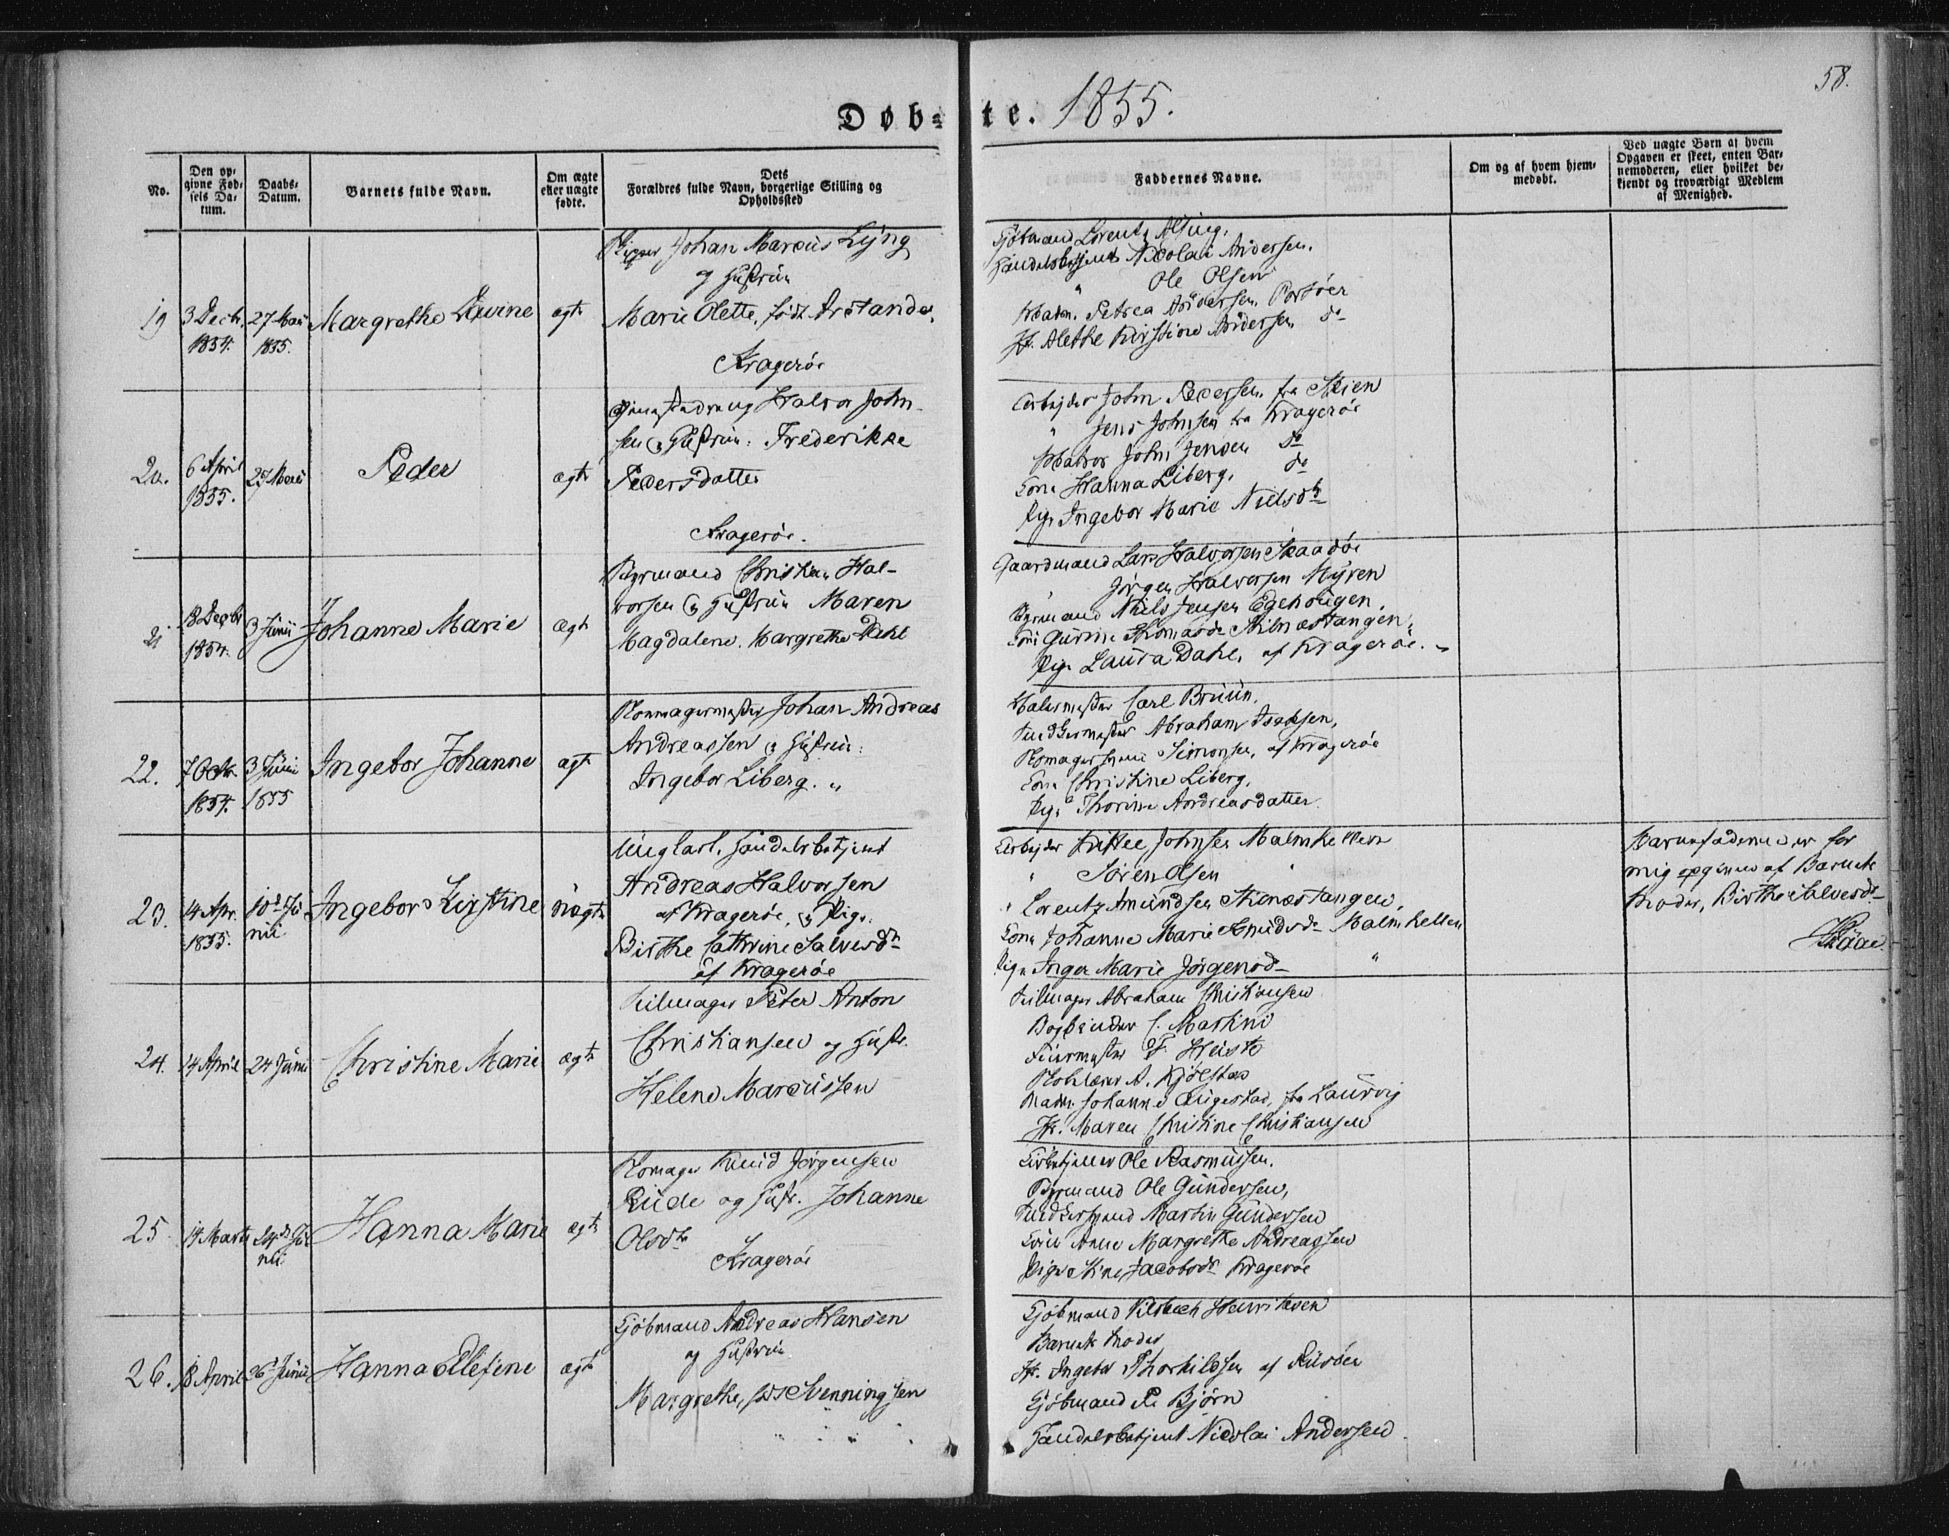 58.
Døb= te. 1855.
No.
Den op-
givne Fød-
sels Da-
tum.
Daabs-
Datum.
Barnets fulde Navn.
Om ægte
eller uægte
fødte.
Dets
Forældres fulde Navn, borgerlige Stilling og
Opholdssted
Faddernes Navne.
Om og af hvem hjem-
medøbt.
Ved uægte Børn af hvem
Opgaven er skeet, enten Bar-
nemoderen, eller hvilket be-
kjendt og troværdigt Medlem
af Menighed.
19
3 Decb.
1854.
27 Mai
1855.
Margrethe
ægte
Skipper Johan Marcus Lyng
og Hustrue
Marie Olette, født
Kragerøe
Kjøbmand Lorentz
Handelsbetjent Nicolai Andersen.
" Ole Olsen
Madm. Petrea Andersen, Portøer
Jf. Alethe Kirstine Andersen do
20.
6 April
1855.
27 Mai
Peder
ægte
Halvor John-
sen & Hustrue: Frederikke
Pedersdatter
Kragerøe.
Arbejder John Pedersen fra Skien
" Jens Johnsen fra Kragerøe
Matros John Jensen do
Kone Hanna Liberg, do
Pige Ingebor Marie Nielsdtr
21
18 Decbr
1854.
3 Junii
Johanne Marie
ægte
Styrmand Christian Hal-
vorsen & Hustrue Maren
Magdalene Margrethe Dahl
Gaardmand Lars Halvorsen Skaadøe
Jørgen Halvorsen Myren
Styrmand Niels Jensen Egehougen.
Kone Gurine Thomasdr Stilnæstangen.
Pige Laura Dahl, af Kragerøe. "
22.
7 Octbr.
1854.
3 Junii
1855
Ingebor Johanne
ægte
Skomagermester Johan Andreas
Andreassen & Hustrue:
Ingebor Liberg. "
Malermester Carl Bruun.
Snedkermester Abraham Isaksen,
Skomagersvend Simonsen, af Kragerøe
Kone Christine Liberg.
Pige Thorine Andreasdatter.
23.
14 Apr.
1855.
10de Ju-
nii
Ingebor Kirstine
uægte
Ungkarl, Handelsbetjent
Andreas Halvorsen
af Kragerøe, & Pige:
Birthe Cathrine Salvesdtr
af Kragerøe
Arbejder Johnsen Malmhellen
" Søren Olsen "
" Lorentz Amundsen Stilnæstangen,
Kone Johanne Marie Knudsdr Malmhellen
Pige Inger Marie Jørgensd. "
Barnefaderen er for
mig opgiven af Barnets
Moder, Birthe Salvesdr
24.
14 April
24 Junii
Christine Marie
ægte
Feilmager Peter Anton
Christiansen og Hustr.
Helene Marcussen
Feilmager Abraham Christiansen
Bogbinder C. Martini
F.
A. Kjølstad
Madm. Johanne Augestad, fra Laurvig
Jf. Maren Christine Christiansen
25
19 Marts
24de Ju-
nii
Hanna Marie
ægte
Skomager Knud Jørgensen
Rude og Hustr. Johanne
Olsdtr
Kragerøe
Ole Rasmussen.
Styrmand Ole Gundersen,
Snedkersvend Martin Gundersen
Kone Anne Margrethe Andreassen
Pige Stine Jacobsdr Kragerøe
26.
18 April
26 Junii
Hanna Ellefine
ægte
Kjøbmand Andreas Hansen
og Hustrue
Margrethe, født Svenningsen
Kjøbmand Henriksen
Barnets Moder
Jf. Ingebor Thorkildsen af Risøer
Kjøbmand P. Bjørn
Handelsbetjent Nicolai Andersen.